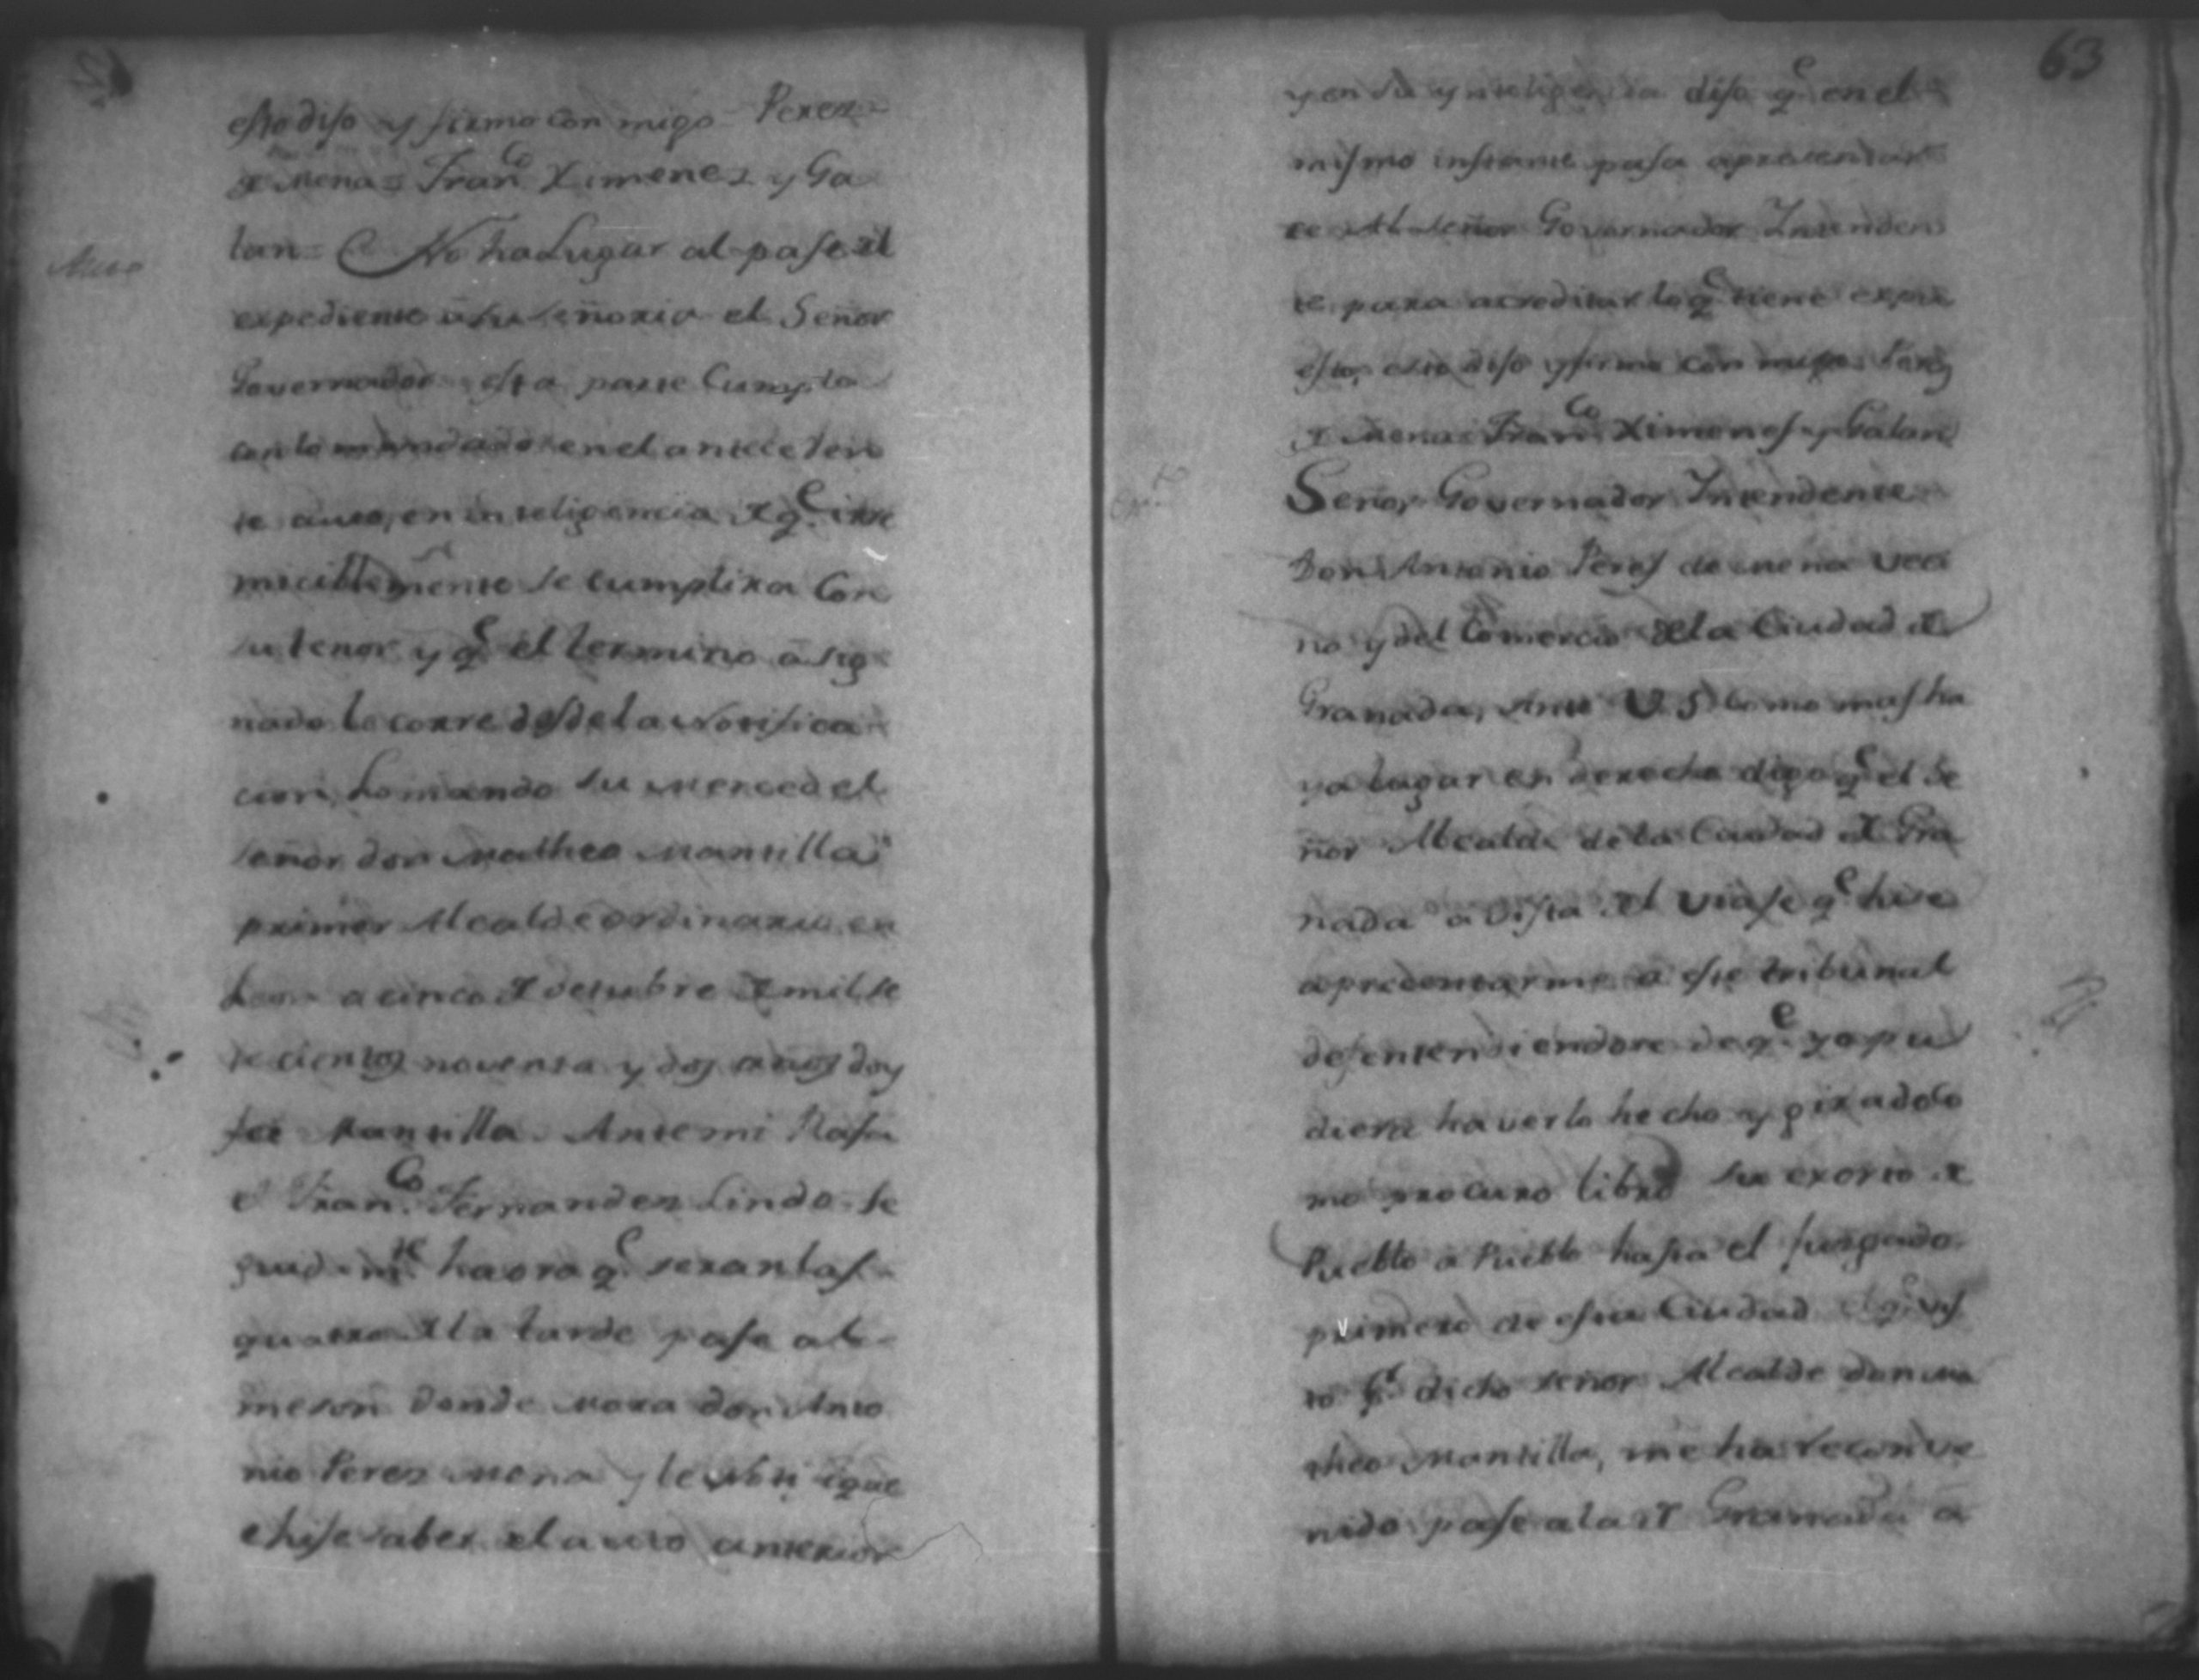 esto dijo y firmo con migo Perez
de Mena = Fran.co Ximenez y Ga
lan = No ha Lugar al pase del
Auto
expediente á su señoria el Señor
Governador esta parte Cumpla
con lo mandado en el anteceden
te auto, en inteligencia de q.e irre
miciblemente se cumplira Con
su tenor y q.e el termino asig
nado le corre desde la Notifica
cion, Lo mando su Merced el
señor don Matheo Mantilla
primer Alcalde ordinario en
Leon a cinco de octubre de mil se
te cientos noventa y dos años doy
fee Mantilla Antemi Rafa
el Fran.co Fernandez Lindo = Se
guidam.te haora q.e seran las
quatro de la tarde pase al
meson donde Mora don Anto
nio Perez Mena y le Notifique
e hise saber el auto anterior
63
y en su ynteligencia dijo q.e en el
mismo instante pasa apresentar
ce Al Señor Governador Intenden
te para acreditar lo q.e tiene expu
esto, esto dijo y firmo con migo Perez
de Mena = Fran.co Ximenes y Galan
Señor Governador Intendente
Don Antonio Peres de Mena Veci
no y del Comercio de la Ciudad de
Granada, Ante V. S. como mas ha
ya lugar en derecho digo q.e el Se
ñor Alcalde de la Ciudad de Gra
nada a vista del viaje q.e hise
apresentarme a este tribunal
desentendiendose de q.e yo pu
diera haverlo hecho y girado lo
mo procuro libro su exorto de
Pueblo a Pueblo hasta el Jusgado
primero de esta Ciudad el q.e vis
to p.r dicho señor Alcalde don Ma
theo Mantilla, me ha reconve
nido pase a la de Granada a